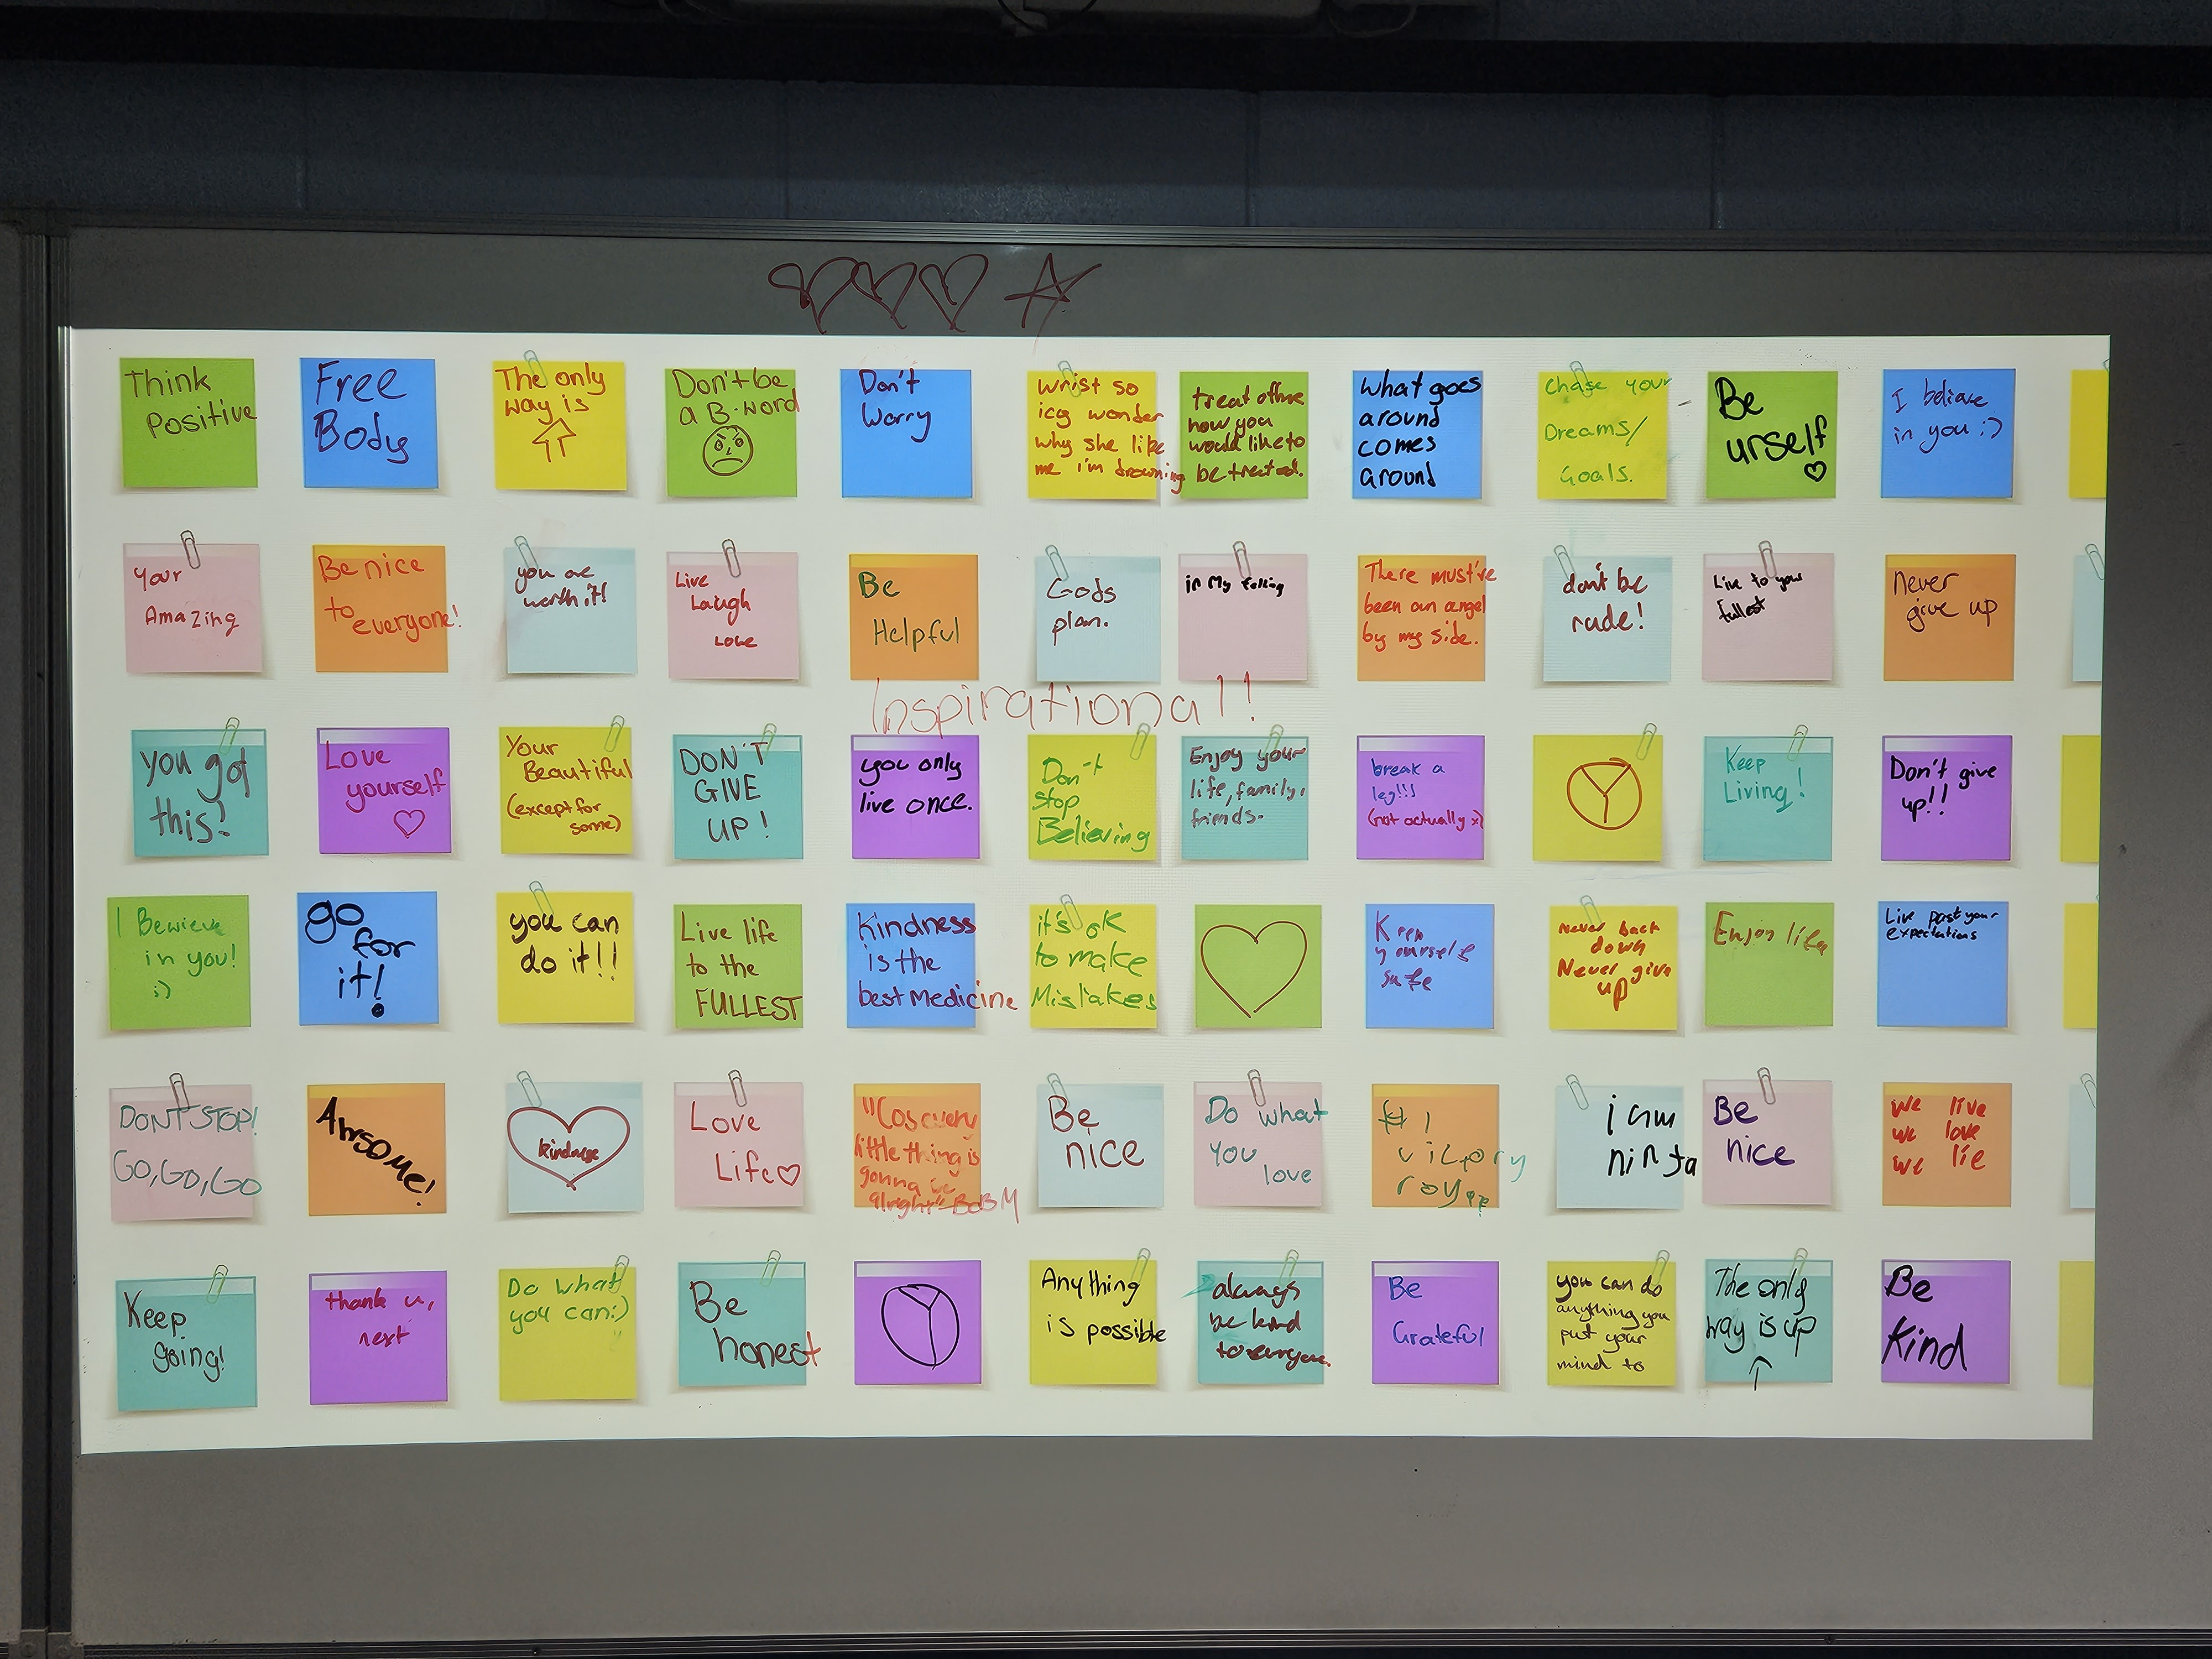 Think
Positive
Free
Body
The only
way is
Don't be
a B-word
Don't
Worry
wrist so
icy wonder
why she like
me i'm drowning
treat
how you
would like to
be treated.
what goes
around
comes
around
Chase your
Dreams/
Goals.
Be
urself
I believe
in you :)
Your
Amazing
Be nice
to everyone!
you are
worth it!
Live
Laugh
Love
Be
Helpful
Gods
plan.
in My felling
There must've
been an angel
by my side.
don't be
rude!
Live to your
fullest
Never
give up
Inspirational!
you got
this!
Love
yourself
Your
Beautiful
(except for
some)
DON'T
GIVE
UP!
you only
live once.
Don't
stop
Believing
Enjoy your
life, family,
friends.
break a
leg!!!
(not actually x)
Keep
Living!
Don't give
up!!
I Bewieve
in you!
;)
go
for
it!
you can
do it!!
Live life
to the
FULLEST
Kindness
is the
best Medicine
it's ok
to make
Mistakes
Keep
yourself
safe
Never back
down
Never give
up
Enjoy life
Live past your
expectations
DONT STOP!
GO, GO, GO
Awsome!
kindness
Love
Life
"Cos every
little thing is
gonna be
alright"-BOB M
Be
nice
Do what
you
love
#1
victory
royale
i am
ninja
Be
nice
We live
we love
we lie
Keep
going!
thank u,
next
Do what
you can:)
Be
honest
Anything
is possible
always
be kind
to everyone.
Be
Grateful
you can do
anything you
put your
mind to
The only
way is up
Be
Kind